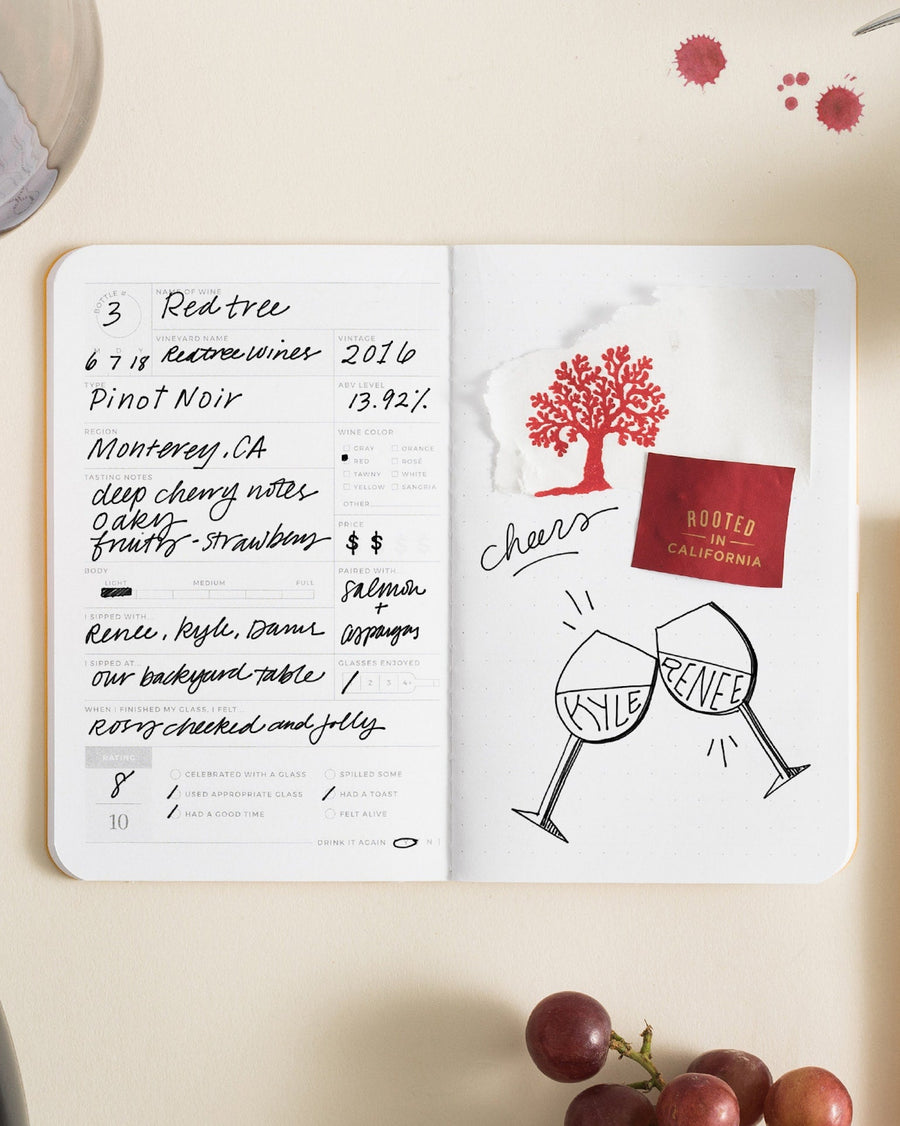 BOTTLE #
3
NAME OF WINE
Redtree
M D Y
6 7 18
VINEYARD NAME
Redtree Wines
VINTAGE
2016
TYPE
Pinot Noir
ABV LEVEL
13.92%
REGION
Monterey, CA
WINE COLOR
GRAY ORANGE
RED ROSÉ
TAWNY WHITE
YELLOW SANGRIA
OTHER
TASTING NOTES
deep cherry notes
oaky
fruity - strawberry
PRICE
$ $ $ $
BODY
LIGHT MEDIUM FULL
PAIRED WITH...
salmon
+
asparagus
I SIPPED WITH...
Renee, Kyle,
I SIPPED AT...
our backyard table
GLASSES ENJOYED
2 3 4+
WHEN I FINISHED MY GLASS, I FELT...
Rosy cheeked and jolly
RATING
8
10
CELEBRATED WITH A GLASS
SPILLED SOME
USED APPROPRIATE GLASS
HAD A TOAST
HAD A GOOD TIME
FELT ALIVE
DRINK IT AGAIN Y N
ROOTED
IN
CALIFORNIA
cheers
KYLE
RENEE